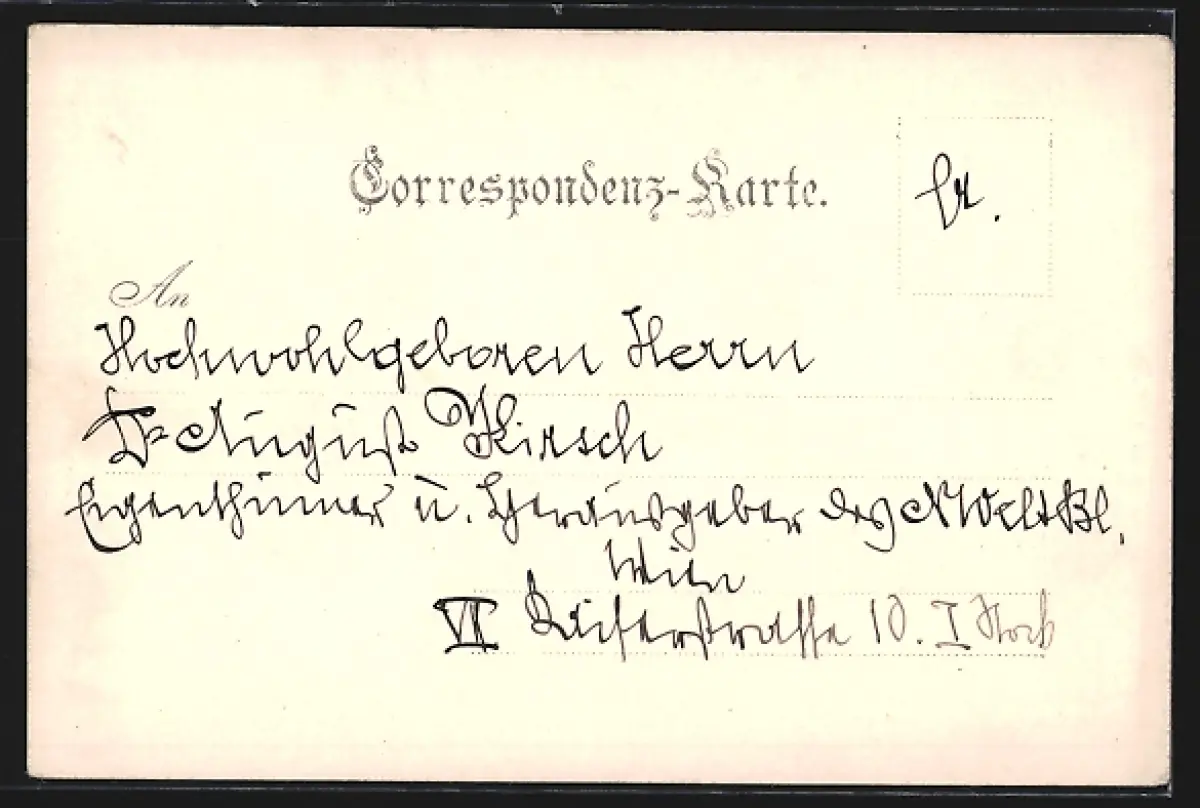 Correspondenz-Karte.
fr.
An
Hochwohlgeboren Herrn
Dr August Kirsch
Eigenthümer u. Herausgeber des N Welt Bl.
Wien
VII Kaiserstrasse 10. I Stock